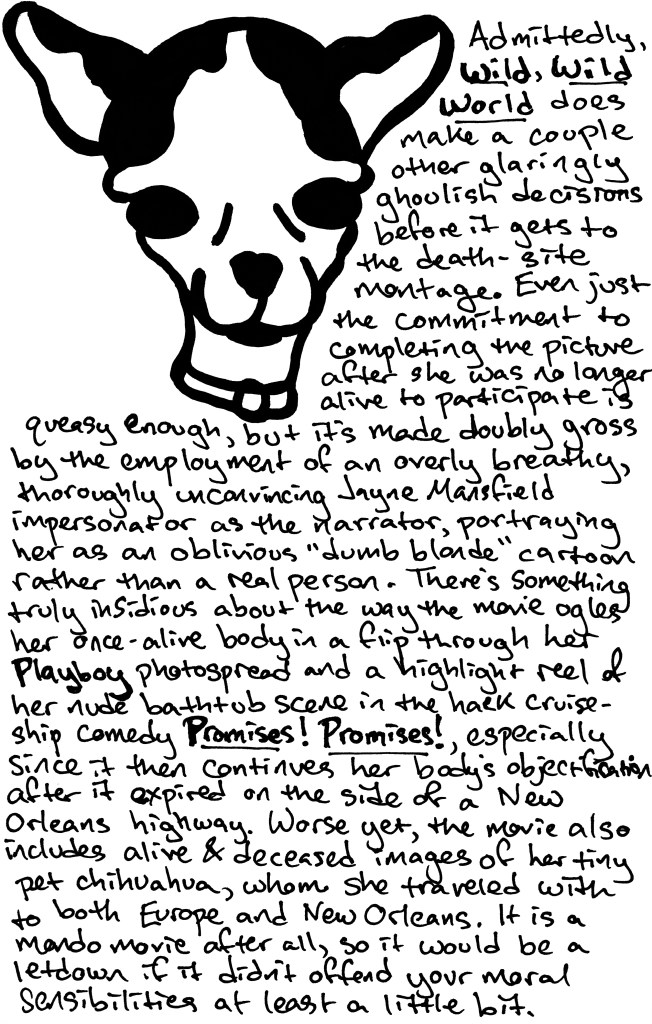 Admittedly,
Wild, Wild
World does
make a couple
other glaringly
ghoulish decisions
before it gets to
the death-site
montage. Even just
the commitment to
completing the picture
after she was no longer
alive to participate is
queasy enough, but it's made doubly gross
by the employment of an overly breathy,
thoroughly unconvincing Jayne Mansfield
impersonator as the narrator, portraying
her as an oblivious "dumb blonde" cartoon
rather than a real person. There's something
truly insidious about the way the movie ogles
her once-alive body in a flip through her
Playboy photospread and a highlight reel of
her nude bathtub scene in the hack cruise-
ship comedy Promises! Promises!, especially
since it then continues her body's objectification
after it expired on the side of a New
Orleans highway. Worse yet, the movie also
includes alive & deceased images of her tiny
pet chihuahua, whom she traveled with
to both Europe and New Orleans. It is a
mondo movie after all, so it would be a
letdown if it didn't offend your moral
sensibilities at least a little bit.